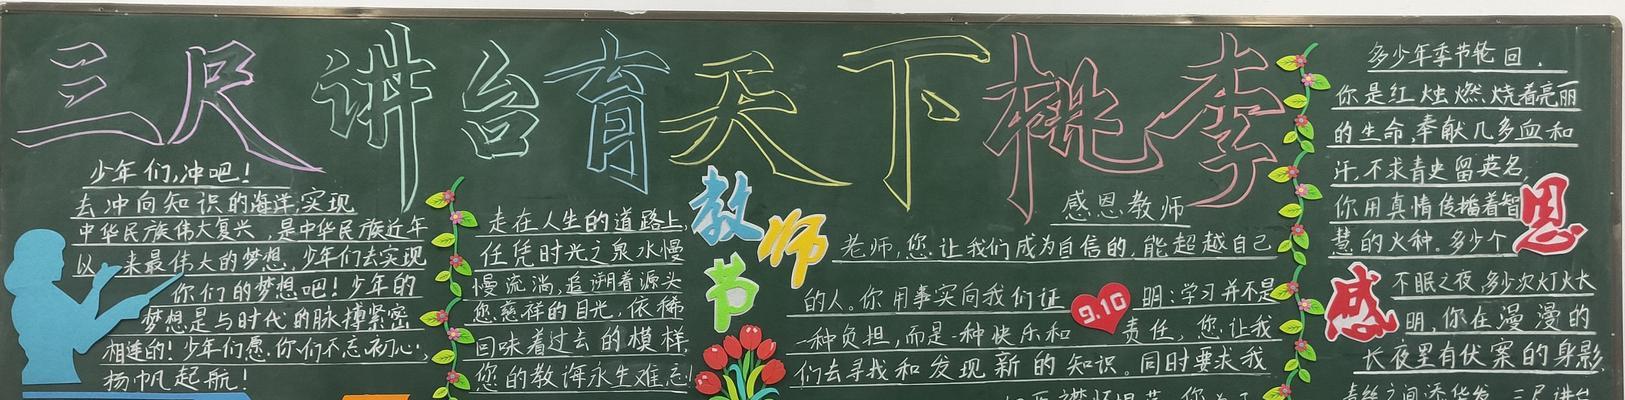 三尺讲台育天下桃李
少年们,冲吧!
去冲向知识的海洋,实现
中华民族伟大复兴,是中华民族近年
以来最伟大的梦想,少年们去实现
你们的梦想吧!少年的
梦想是与时代的脉搏紧密
相连的!少年们愿你们不忘初心,
扬帆起航!
走在人生的道路上,
任凭时光之泉水慢
慢流淌,追溯着源头
您慈祥的目光,依稀
回味着过去的模样,
您的教诲永生难忘!
教师节
感恩教师
老师,您让我们成为自信的,能超越自己
的人。你用事实向我们证明:学习并不是
一种负担,而是一种快乐和责任,您让我
们去寻找和发现新的知识。同时要求我
9.10
多少年季节轮回,
你是红烛燃烧着亮丽
的生命,奉献几多血和
汗,不求青史留英名,
你用真情传播着智
慧的火种。多少个
不眠之夜,多少次灯火长
明,你在漫漫的
长夜里有伏案的身影,
感恩